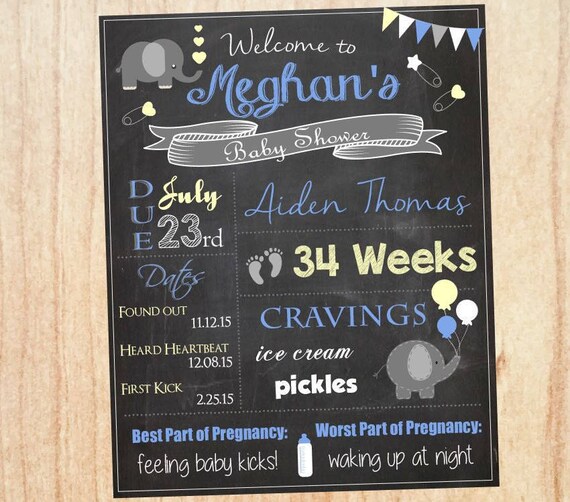 Welcome to
Meghan's
Baby Shower
DUE
July
23rd
Aiden Thomas
34 Weeks
Dates
Found out
11.12.15
Heard Heartbeat
12.08.15
First Kick
2.25.15
Cravings
ice cream
pickles
Best Part of Pregnancy:
feeling baby kicks!
Worst Part of Pregnancy:
waking up at night